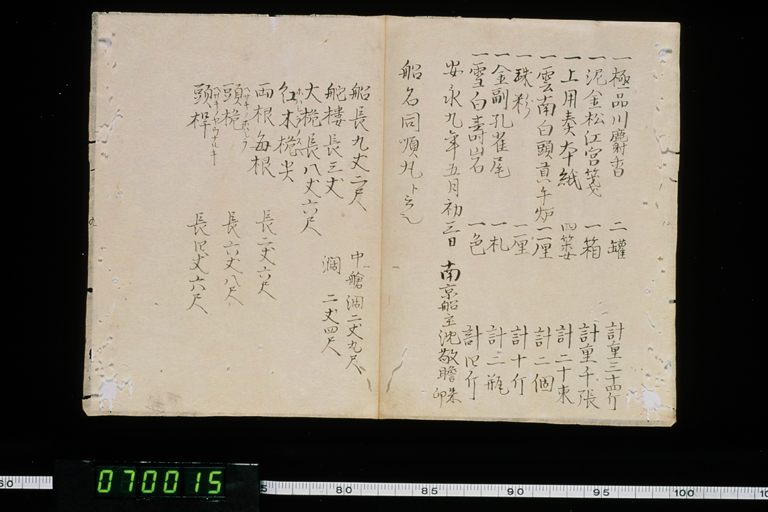 一極一品川麝香 二罐 計重三十四斤
一泥金松江宮箋 一箱 計重千張
一上用奏本紙 四篓 計二十束
一雲南白頭真午炉 一厘 計二個
一珠粉 一厘 計十斤
一金副孔雀尾 一札 計三瓶
一雪白壽山石 一色 計四斤
安永九年五月初三日 南京船主沈敬瞻 朱印
船名同順丸ト云
船長九丈二尺 中艙濶二丈九尺
舵樓長三丈 濶 二丈四尺
大桅長八丈六尺
紅木桅尖
両根毎根 長二丈六尺
頭桅 長六丈八尺
頭桿 長四丈六尺
070015
80 85 90 95 100